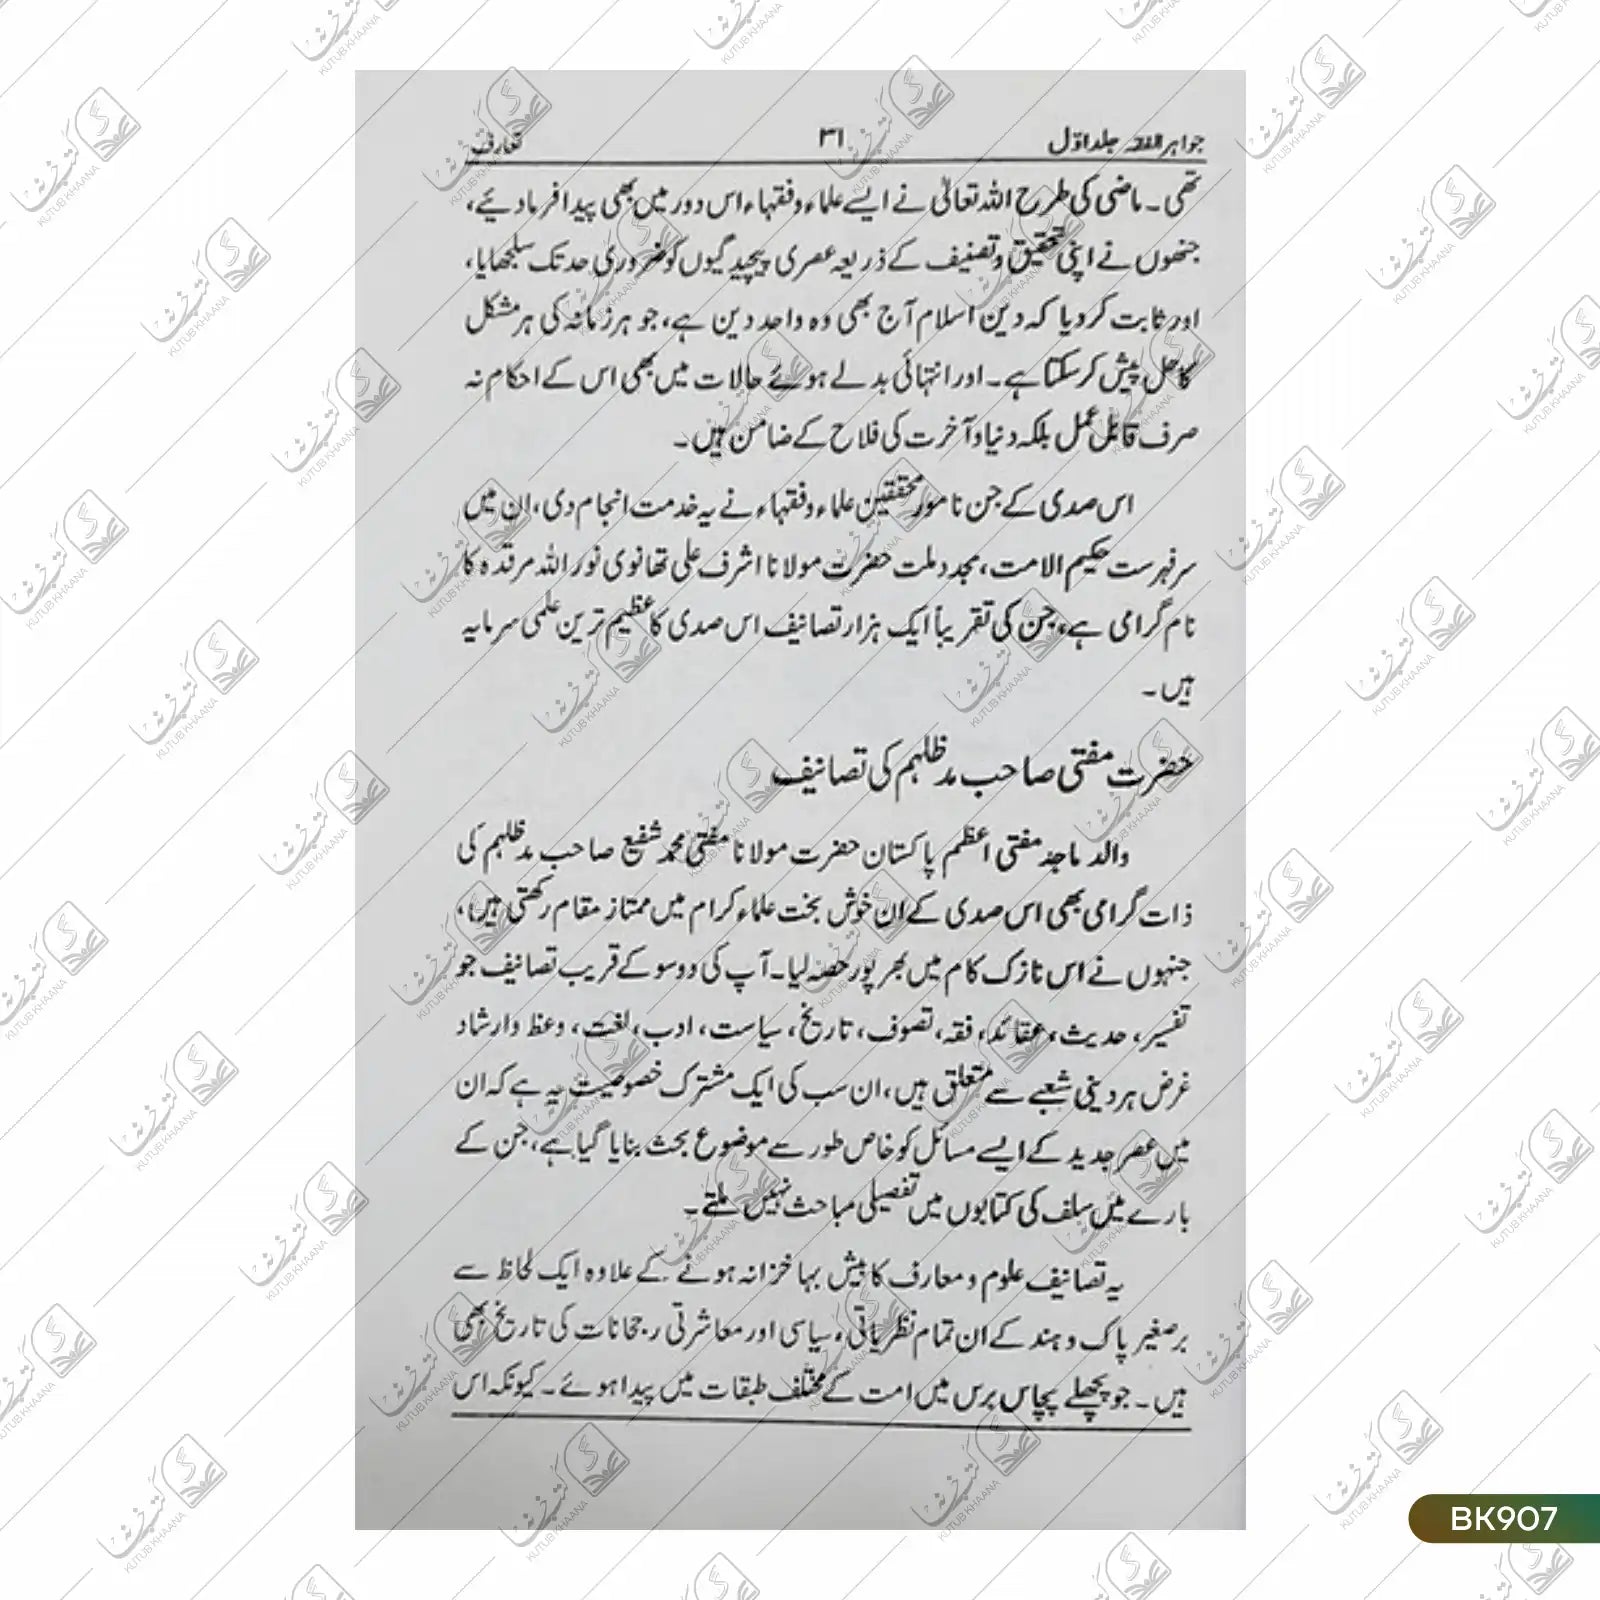 جواہر الفقہ جلد اوّل ۳۱ تعارف
تھی۔ ماضی کی طرح اللہ تعالیٰ نے ایسے علماء و فقہاء اس دور میں بھی پیدا فرمادیئے،
جنھوں نے اپنی تحقیق و تصنیف کے ذریعہ عصری پیچیدگیوں کو ضروری حد تک سلجھایا،
اور ثابت کردیا کہ دین اسلام آج بھی وہ واحد دین ہے، جو ہر زمانہ کی ہر مشکل
کا حل پیش کرسکتا ہے۔ اور انتہائی بدلے ہوئے حالات میں بھی اس کے احکام نہ
صرف قابل عمل بلکہ دنیا و آخرت کی فلاح کے ضامن ہیں۔
اس صدی کے جن نامور محققین علماء و فقہاء نے یہ خدمت انجام دی، ان میں
سرفہرست حکیم الامت، مجدد ملت حضرت مولانا اشرف علی تھانوی نور اللہ مرقدہ کا
نام گرامی ہے، جن کی تقریباً ایک ہزار تصانیف اس صدی کا عظیم ترین علمی سرمایہ
ہیں۔
حضرت مفتی صاحب مدظلہم کی تصانیف
والد ماجد مفتی اعظم پاکستان حضرت مولانا مفتی محمد شفیع صاحب مدظلہم کی
ذات گرامی بھی اس صدی کے ان خوش بخت علماء کرام میں ممتاز مقام رکھتی ہیں،
جنہوں نے اس نازک کام میں بھرپور حصہ لیا۔ آپ کی دوسو کے قریب تصانیف جو
تفسیر، حدیث، عقائد، فقہ، تصوف، تاریخ، سیاست، ادب، لغت، وعظ وارشاد
غرض ہر دینی شعبے سے متعلق ہیں، ان سب کی ایک مشترک خصوصیت یہ ہے کہ ان
میں عصر جدید کے ایسے مسائل کو خاص طور سے موضوع بحث بنایا گیا ہے، جن کے
بارے میں سلف کی کتابوں میں تفصیلی مباحث نہیں ملتے۔
یہ تصانیف علوم و معارف کا بیش بہا خزانہ ہونے کے علاوہ ایک لحاظ سے
برصغیر پاک و ہند کے ان تمام نظریاتی، سیاسی اور معاشرتی رجحانات کی تاریخ بھی
ہیں۔ جو پچھلے پچاس برس میں امت کے مختلف طبقات میں پیدا ہوئے۔ کیونکہ اس
BK907